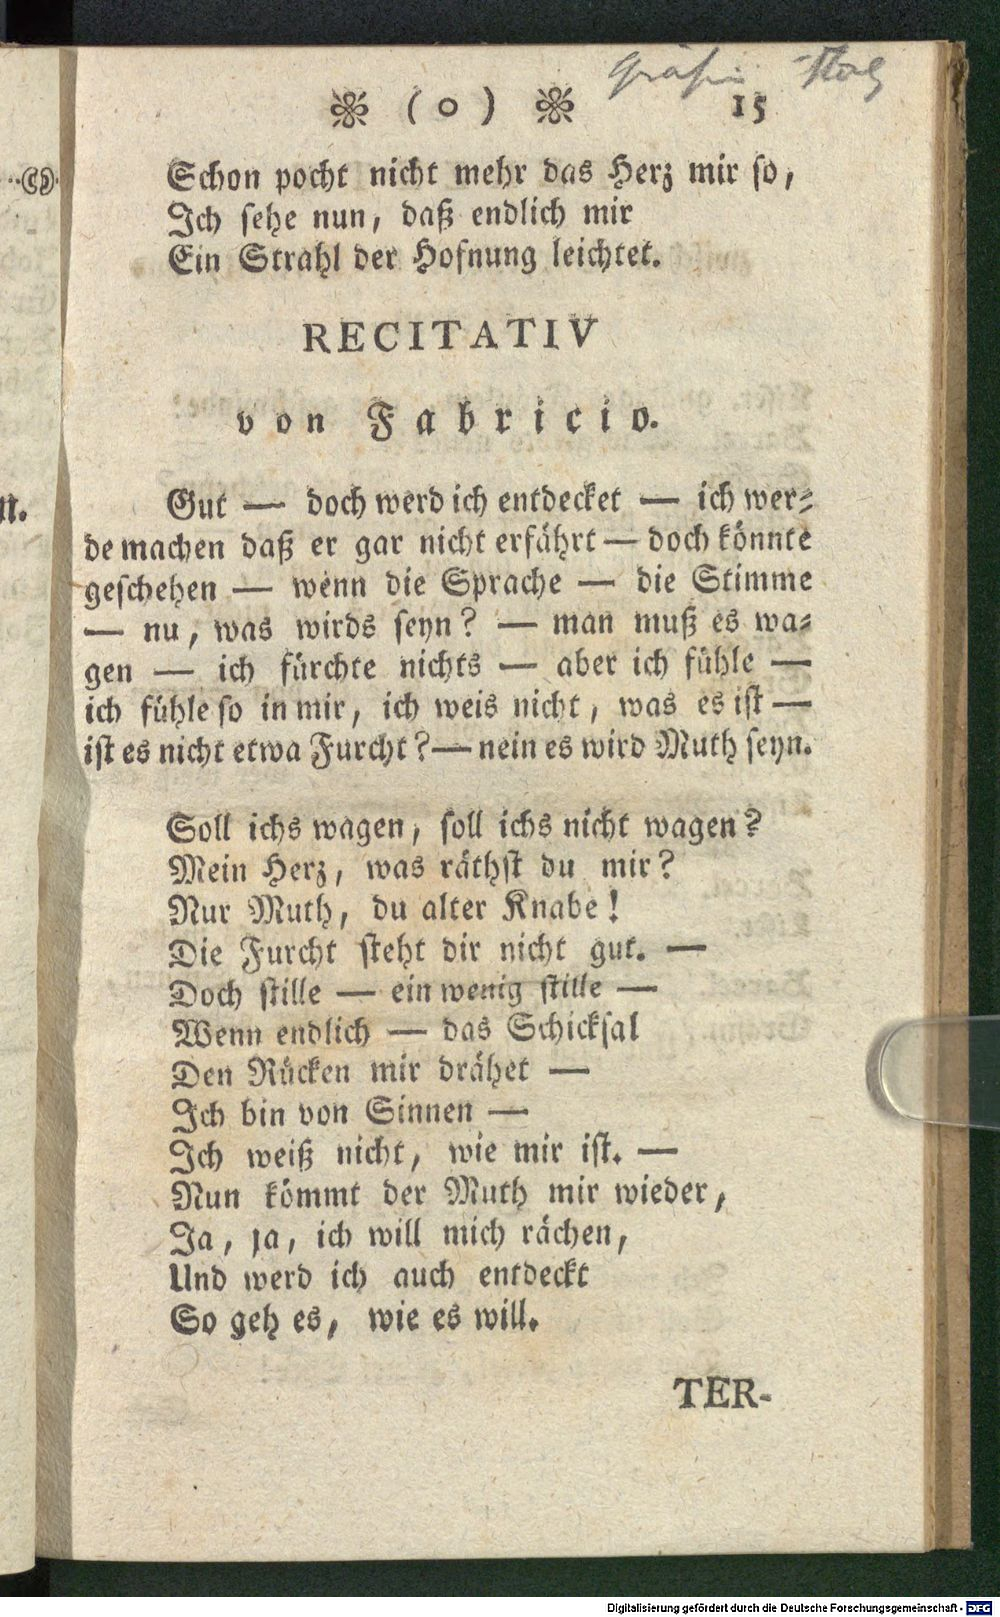 ( o ) 15
Schon pocht nicht mehr das Herz mir so,
Ich sehe nun, daß endlich mir
Ein Strahl der Hofnung leichtet.
RECITATIV
von Fabricio.
Gut — doch werd ich entdecket — ich wer-
de machen daß er gar nicht erfährt — doch könnte
geschehen — wenn die Sprache — die Stimme
— nu, was wirds seyn? — man muß es wa-
gen — ich fürchte nichts — aber ich fühle —
ich fühle so in mir, ich weis nicht, was es ist —
ist es nicht etwa Furcht? — nein es wird Muth seyn.
Soll ichs wagen, soll ichs nicht wagen?
Mein Herz, was räthst du mir?
Nur Muth, du alter Knabe!
Die Furcht steht dir nicht gut. —
Doch stille — ein wenig stille —
Wenn endlich — das Schicksal
Den Rücken mir drähet —
Ich bin von Sinnen —
Ich weiß nicht, wie mir ist. —
Nun kömmt der Muth mir wieder,
Ja, ja, ich will mich rächen,
Und werd ich auch entdeckt
So geh es, wie es will.
TER-
n.
Digitalisierung gefördert durch die Deutsche Forschungsgemeinschaft - DFG